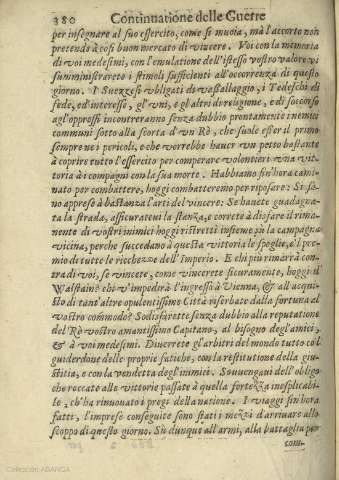 380 Continuatione delle Guerre
per insegnare al suo essercito, come si muoia, mà l'accorto non
pretende à cosi buon mercato di vincere. Voi con la memoria
di voi medesimi, con l'emulatione dell'istesso vostro valore vi
sumministrarete i stimoli sufficienti all'occorrenza di questo
giorno. I Suezzesi obligati di vastallaggio, i Tedeschi di
fede, ed'interesso, gl'vni, e gl'altri di religione, e di soccorso
agl'oppressi incontreranno senza dubbio prontamente i nemici
communi sotto alla scorta d'vn Rè, che suole esser il primo
sempre ne i pericoli, e che vorrebbe hauer vn petto bastante
à coprire tutto l'essercito per comperare volontieri vna vit-
toria à i compagni con la sua morte. Habbiamo sin'hora cami-
nato per combattere, hoggi combatteremo per riposare: Si so-
no apprese à bastanza l'arti del vincere: Se hauete guadagna-
ta la strada, assicurateui la stanza, e correte à disfare il rima-
nente di vostri inimici hoggi ristretti insieme in la campagna
vicina, perche succedano à questa vittoria le spoglie, e'l pre-
mio di tutte le ricchezze dell'Imperio. E chi più rimarrà con-
tra di voi, se vincete, come vincerete sicuramente, hoggi il
Walstain? chi v'impedirà l'ingresso à Vienna, & all'acqui-
sto di tant'altre opulentissime Città riserbate dalla fortuna al
vostro commodo? Sodisfarete senza dubbio alla reputatione
del Rè vostro amantissimo Capitano, al bisogno degl'amici,
& à voi medesimi. Diuerrete gl'arbitri del mondo tutto co'l
guiderdone delle proprie fatiche, con la restitutione della giu-
stitia, e con la vendetta degl'inimici. Souuengaui dell'obligo
che roccato alle vittorie passate à quella fortezza inesplicabi-
le, ch'ha rinouato i pregi della natione. I viaggi sin hora
fatti, l'imprese conseguite sono stati i mezzi d'arriuare allo
scoppo di questo giorno. Sù dunque all'armi, alla battaglia per
com-
Colección ABANCA